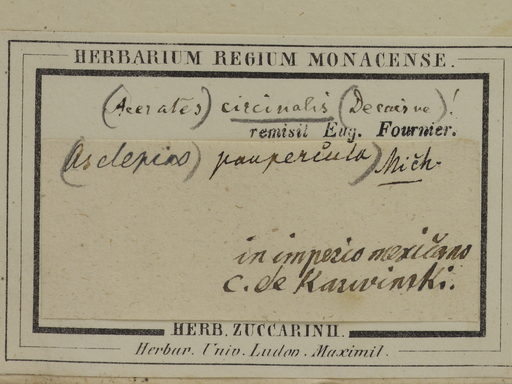 HERBARIUM REGIUM MONACENSE.
(Acerates) circinalis (Decaisne)!
remisit Eug. Fournier.
(Asclepias) paupercula) Mich.
in imperio mexicano
C. de Karwinski.
HERB. ZUCCARINII.
Herbar. Univ. Ludov. Maximil.